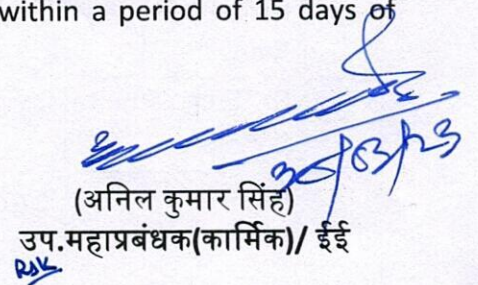 within a period of 15 days of
30/03/23
(अनिल कुमार सिंह)
उप.महाप्रबंधक(कार्मिक)/ ईई
RSK